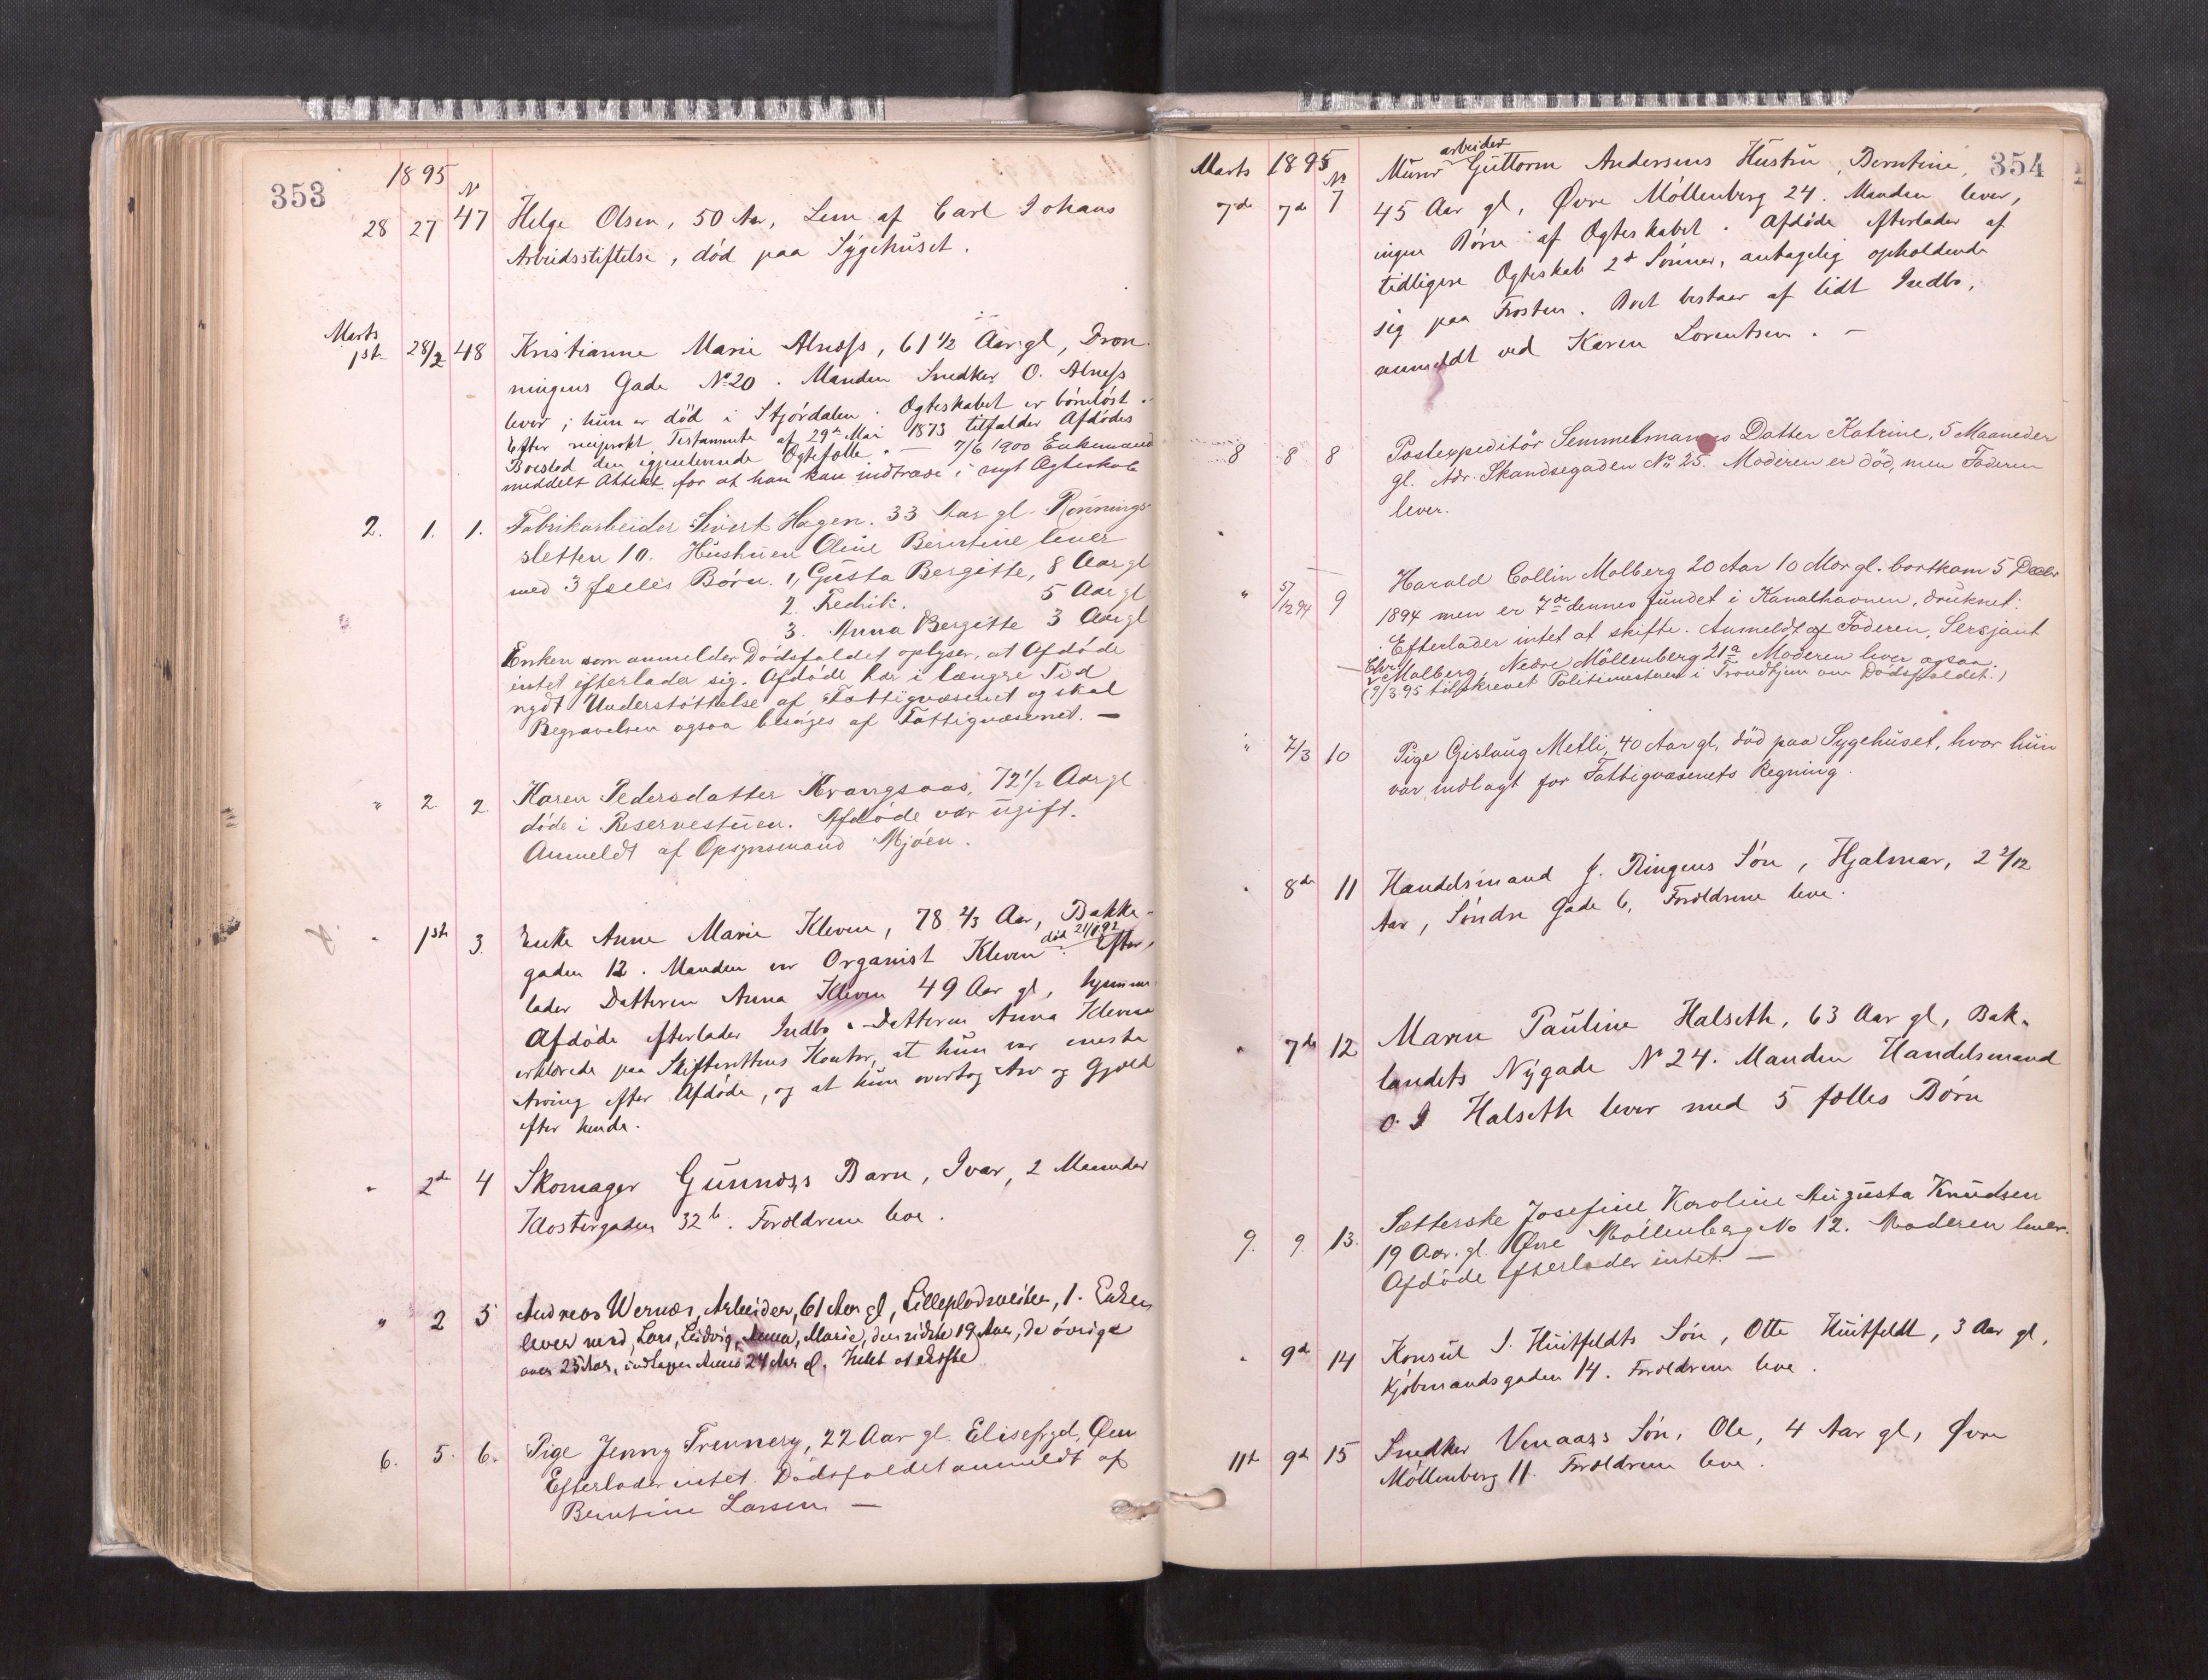 353
1895
No
28 27 47 Helge Olsen, 50 Aar, Lem af Carl Johans
Arbeidsstiftelse, död paa Sygehuset.
Marts
1ste 28/2 48 Kristianne Marie Alness, 61 1/2 Aar gl, Dron-
ningens Gade No 20. Manden Snedker O. Alness
lever; hun er död i Stjørdalen. Ægteskabet er børnløst.
Efter reciprokt Testamente af 29de Mai 1873 tilfalder Afdødes
Boeslod den igjenlevende Ægtefælle. — 7/6 1900 Enkemand
meddelt Attest for at han kan indtræde i nyt Ægteskab
2. 1. 1. Fabrikarbeider Sivert Hagen. 33 Aar gl. Rönnings-
sletten 10. Hustruen Oline Berntine lever
med 3 fælles Børn. 1, Gusta Bergitte, 8 Aar gl
2. Fredrik. 5 Aar gl
3. Anna Bergitte 3 Aar gl
Enken som anmelder Dödsfaldet oplyser, at Afdöde
intet efterlader sig. Afdöde har i længre Tid
nydt Understöttelse af Fattigvæsenet og skal
Begravelsen ogsaa besörges af Fattigvæsenet. —
" 2 2. Karen Pedersdatter Kvangsaas, 72 1/2 Aar gl
döde i Reservestuen. Afdöde var ugift.
Anmeldt af Opsynsmand Mjöen.
" 1ste 3. Enke Anne Marie Kleven, 78 2/3 Aar, Bakke-
gaden 12. Manden var Organist Kleven död 21/1 92. Efter-
lader Datteren Anna Kleven 49 Aar gl, hjemme
Afdøde efterlader Indbo. Datteren Anna Kleven
erklærede paa Skifterettens Kontor, at hun var eneste
Arving efter Afdøde, og at hun overtog Arv og Gjæld
efter hende.
" 2de 4 Skomager Gunnars Barn, Ivar, 2 Maaneder
Klostergaden 32b. Forældrene leve.
" 2 5 Andreas Wernæs, Arbeider, 61 Aar gl, Lillepladsveiten, 1. Enken
lever med, Lars, Ludvig, Anna, Marie, den sidste 19 Aar, de övrige
over 25 Aar, undtagen Anna 24 Aar gl. Intet at skifte
6. 5. 6. Pige Jenny Trennery, 22 Aar gl. Elisefryd, Öen
Efterlader intet. Dödsfaldet anmeldt af
Berntine Larsen —
354
Marts 1895
No
arbeider
7de 7de 7 Murer Guttorm Andersens Hustru, Berntine,
45 Aar gl, Øvre Møllenberg 24. Manden lever,
ingen Børn af Ægteskabet. Afdøde efterlader af
tidligere Ægteskab 2de Sønner, antagelig opholdende
sig paa Frosten. Boet bestaar af lidt Indbo,
anmeldt ved Karen Lorentsen. —
8 8 8 Postexpeditör Semmelmanns Datter Katrine, 5 Maaneder
gl. Adr. Skandsegaden No 25. Moderen er död, men Faderen
lever.
" 5/12 94 9 Harald Collin Malberg 20 Aar 10 Mdr gl. bortkom 5 Decbr
1894 men er 7de dennes fundet i Kanalhavnen, druknet.
Efterlader intet at skifte. Anmeldt af Faderen, Sersjant
Chr Malberg, Nedre Möllenberg 21a Moderen lever ogsaa.
(9/3 95 tilskrevet Politimesteren i Trondhjem om Dödsfaldet.)
" 7/3 10 Pige Gislaug Metli, 40 Aar gl, död paa Sygehuset, hvor hun
var indlagt for Fattigvæsenets Regning.
" 8de 11 Handelsmand J. Ringens Søn, Hjalmar, 2 2/12
Aar, Søndre Gade 6, Forældrene leve.
" 7de 12 Maren Pauline Halseth, 63 Aar gl, Bak-
landets Nygade No 24. Manden Handelsmand
O. I Halseth lever med 5 fælles Børn
9. 9. 13. Sætterske Josefine Karoline Augusta Knudsen
19 Aar. gl. Øvre Möllenberg No 12. Moderen lever.
Afdöde efterlader intet. —
" 9de 14 Konsul I. Huitfeldts Søn, Otte Huitfeldt, 3 Aar gl,
Kjøbmandsgaden 14. Forældrene leve.
11te 9de 15 Snedker Venaass Søn, Ole, 4 Aar gl, Øvre
Møllenberg 11. Forældrene leve.